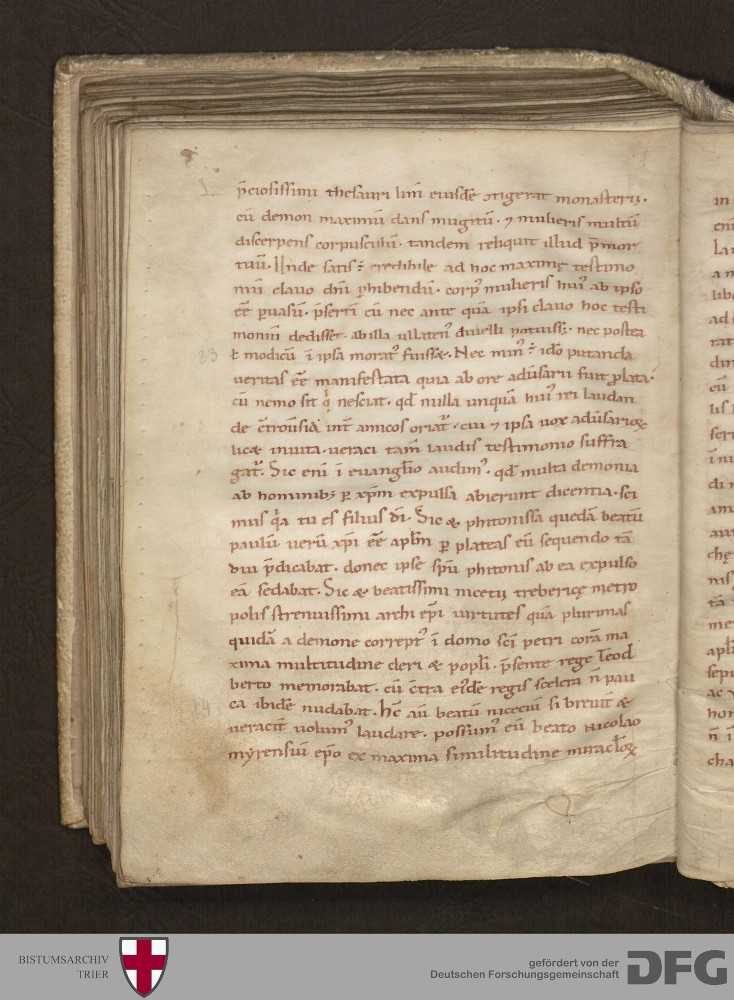 p̄ciosissimi thesauri limī eiusdē ↄtigerat monasterii.
cū demon maximū dans mugitū. ⁊ mulieris multū
discerpens corpusculū. tandem reliquit illud p̄mor
tuū. Unde satis ÷ credibile ad hoc maximę testimo
niū clauo dn̄i ꝓhibendū. corpꝰ mulieris huiꝰ ab ipso
eē ꝑuasū. p̄sertī cū nec ante quā ipsi clauo hoc testi
moniū dedisset. ab illa ullatenꝰ diuelli potuisset. nec postea
ł modicū ī ipsa moratꝰ fuisset. Nec minꝰ ÷ idō putanda
83
ueritas eē manifestata quia ab ore aduersarii fuit ꝓlata.
cū nemo sit qͥ nesciat. qđ nulla unquā huiꝰ rei laudan
de ↄtrouersia int̄ amicos oriat᷑. cui ⁊ ipsa uox aduersarioꝝ
licet inuita. ueraci tam̄ laudis testimonio suffra
gat᷑. Sic enī ī euangl̄io audimꝰ. qđ multa demonia
ab hominibꝫ ꝑ xp̄m expulsa abierunt dicentia. sci
mus qͥa tu es filius dī. Sic & phitonissa quedā beatū
paulū uerū xp̄i eē apl̄m ꝑ plateas eū sequendo tā
diu p̄dicabat. donec ipse sp̄u phitonis ab ea expulso
eā sedabat. Sic & beatissimi nicetii treberice metro
polis strenuissimi archi ep̄i uirtutes quā plurimas
quidā a demone correptꝰ ī domo sc̄i petri corā ma
xima multitudine cleri & popl̄i. p̄sente rege Teod
berto memorabat. cū ↄtra eiꝰdē regis scelera n̄ pau
ca ibidē nudabat. Hc̄ aū beatū niceciū si breuit̄ &
14
ueracit̄ uolumꝰ laudare. possumꝰ eū beato nicolao
myrensiū ep̄o ex maxima similitudine miracl̄oꝝ
BISTUMSARCHIV
TRIER
gefördert von der
Deutschen Forschungsgemeinschaft
DFG